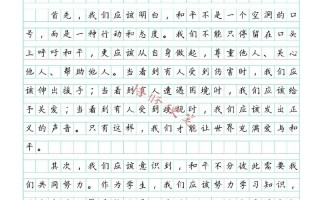 首先，我们应该明白，和平不是一个空洞的口
号，而是一种行动和态度。我们不能只停留在口头
上呼吁和平，更应该从自身做起，尊重他人、关心
他人、帮助他人。当看到有人受到伤害时，我们应
该伸出援手；当看到有人遭遇困境时，我们应该给
予关爱；当看到有人受到歧视时，我们应该发出正
义的声音。只有这样，我们才能让世界充满爱与和
平。
其次，我们应该意识到，和平不分彼此需要我
们共同努力。作为学生，我们应该努力学习知识，